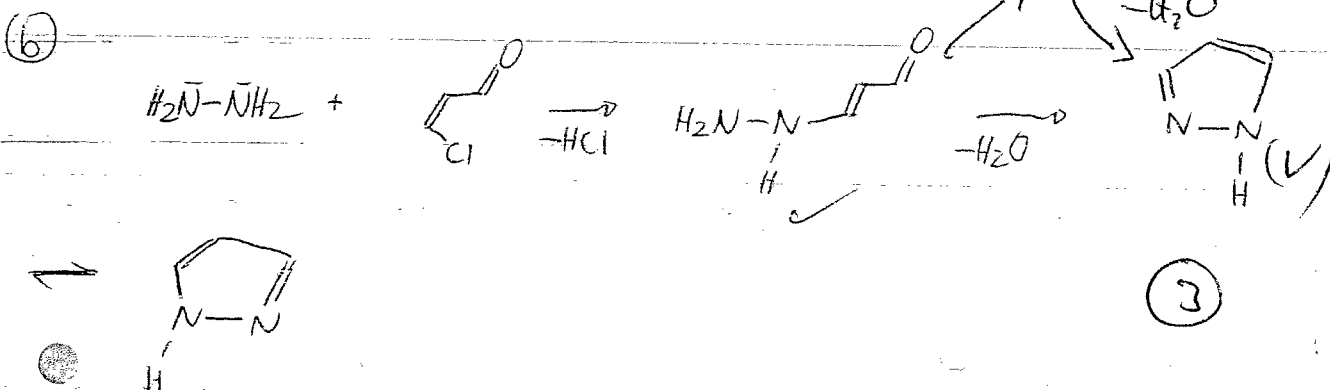 ⑥
-H₂O
H₂N̄-N̄H₂ + O Cl -HCl H₂N-N H O -H₂O N-N H (V)
⇌ N-N H
③